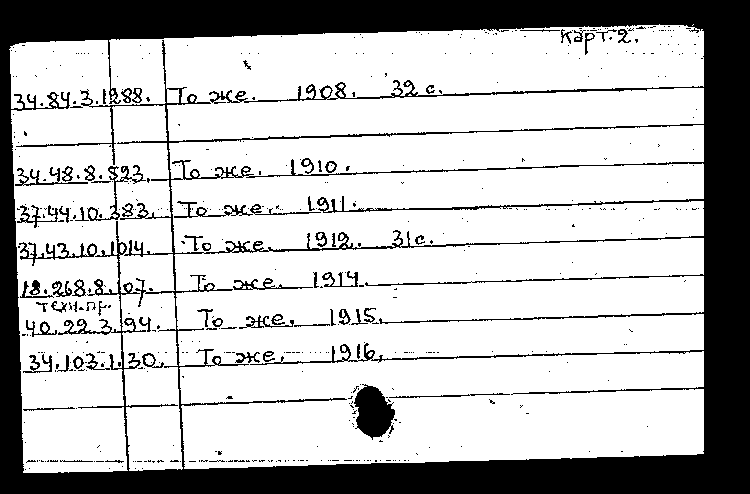 Карт. 2.
34.84.3.1288. То же. 1908. 32 с.
34.48.8.523. То же. 1910.
37.44.10.383. То же. 1911.
37.43.10.1014. То же. 1912. 31с.
18.268.8.107. То же. 1914.
техн.пр.
40.22.3.94. То же. 1915.
34.103.1.30. То же. 1916.